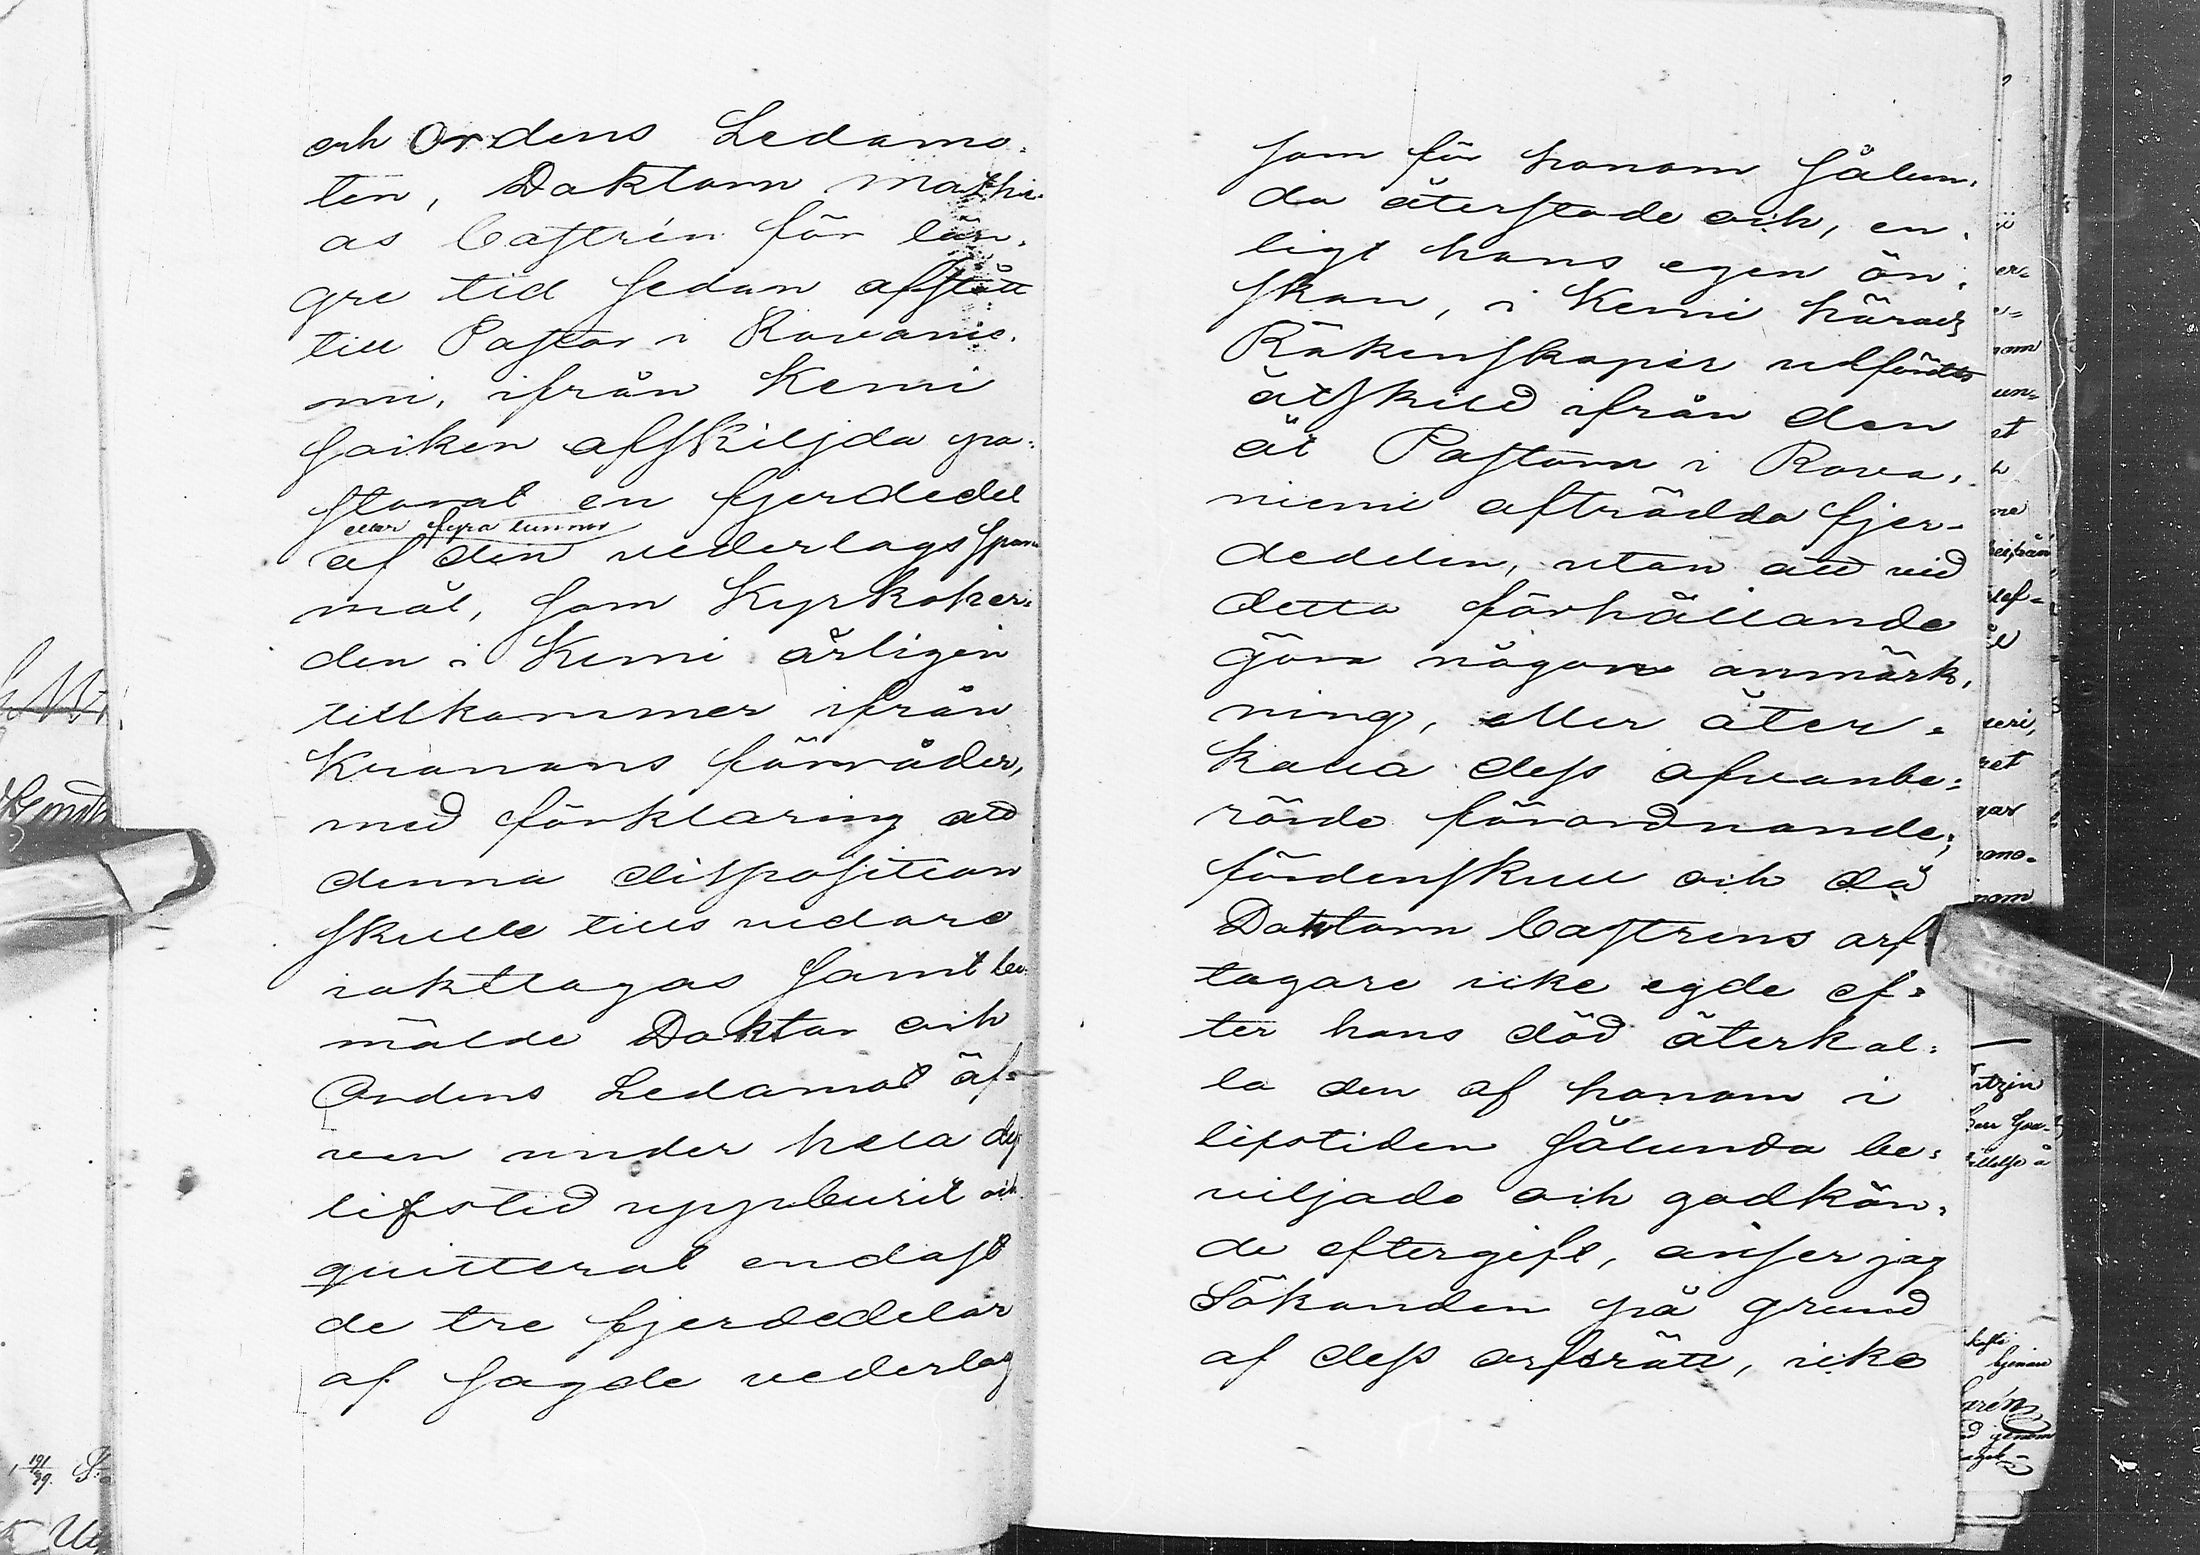 och Ordens Ledamo-
ten, Doktorn Mathi-
as Castrén för län-
gre tid sedan afstått
till Pastor i Rovanie-
mi, ifrån Kemi
socken afskiljda pa-
storat en fjerdedel
eller fyra tunnor
af den vederlags span-
mål, som Kyrkoher-
den i Kemi årligen
tillkommer ifrån
Kronans förråder,
med förklaring att
denna disposition
skulle tills vidare
iakttagas samt be-
mälde Doktor och
Ordens Ledamot äf-
ven under hela dess
lifstid uppburit och
quitterat endast
de tre fjerdedelar
af sagde vederlag
som för honom sålun-
da återstode och, en-
ligt hans egen ön-
skan, i Kemi härads
Räkenskaper utfördts
åtskild ifrån den
åt Pastorn i Rova-
niemi afträdda fjer-
dedelen, utan att vid
detta förhållande
göra någon anmärk-
ning, eller åter-
kalla dess ofvanbe-
rörde förordnande;
fördenskull och då
Doktorn Castrens arf-
tagare icke egde ef-
ter hans död återkal-
la den af honom i
lifstiden sålunda be-
viljade och godkän-
de eftergift, anser jag
Sökanden på grund
af dess arfsrätt, icke